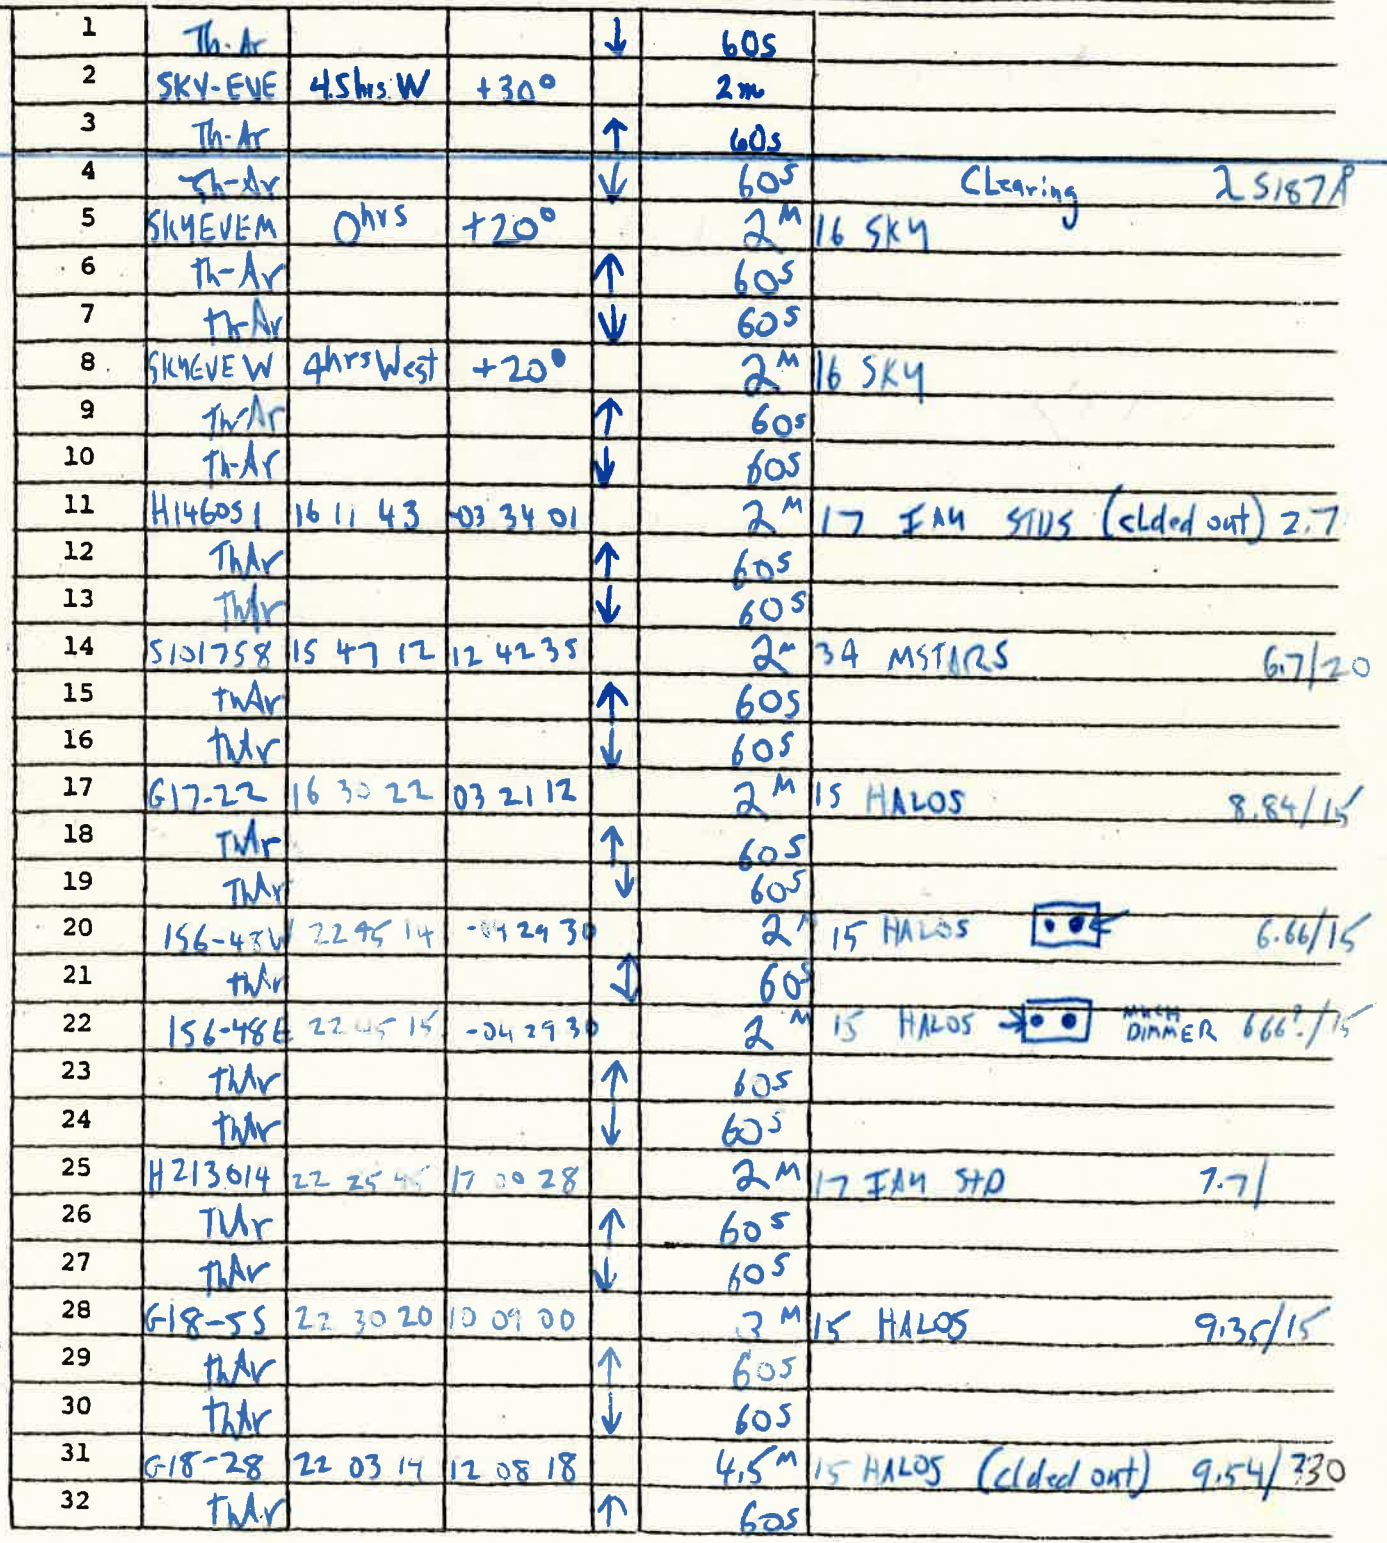 1 Th-Ar ↓ 60s
2 SKY-EVE 4.5hrs W +30° 2m
3 Th-Ar ↑ 60s
4 Th-Ar ↓ 60s Clearing λ 5187Å
5 SKYEVEM 0hrs +20° 2M 16 SKY
6 Th-Ar ↑ 60s
7 th-Ar ↓ 60s
8 SKYEVE W 4hrs West +20° 2M 16 SKY
9 Th-Ar ↑ 60s
10 Th-Ar ↓ 60s
11 H146051 16 11 43 -03 34 01 2M 17 IAU STDS (clded out) 2.7
12 ThAr ↑ 60s
13 ThAr ↓ 60s
14 S101758 15 47 12 12 42 35 2M 34 MSTARS 6.7/20
15 thAr ↑ 60s
16 thAr ↓ 60s
17 G17-22 16 30 22 03 21 12 2M 15 HALOS 8.84/15
18 ThAr ↑ 60s
19 ThAr ↓ 60s
20 156-48W 22 45 14 -04 29 30 2M 15 HALOS 6.66/15
21 thAr ↕ 60s
22 156-48E 22 45 15 -04 29 30 2M 15 HALOS MUCH DIMMER 666?/15
23 thAr ↑ 60s
24 thAr ↓ 60s
25 H213014 22 25 45 17 00 28 2M 17 IAU STD 7.7/
26 ThAr ↑ 60s
27 thAr ↓ 60s
28 G18-55 22 30 20 10 09 00 M 15 HALOS 9.35/15
29 thAr ↑ 60s
30 thAr ↓ 60s
31 G18-28 22 03 14 12 08 18 4.5M 15 HALOS (clded out) 9.54/330
32 ThAr ↑ 60s